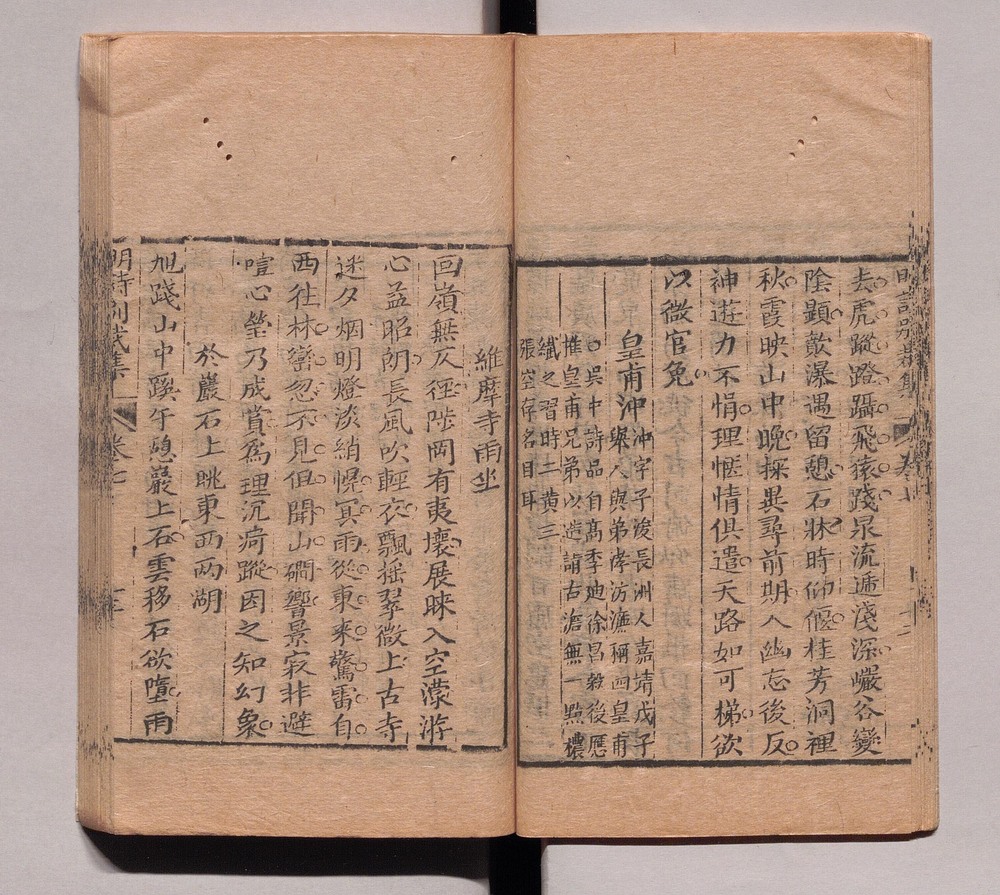 去虎蹤蹬躡飛猿踐泉流遞淺深巖谷變
陰顯歕瀑遇留憩石牀時仰偃桂芳洞裡
秋霞映山中晚採異尋前期入幽忘後反
神遊力不悁理愜情俱遣天路如可梯欲
以微官免
皇甫沖沖字子浚長洲人嘉靖戊子
舉人與弟涍汸濂稱四皇甫
○吳中詩品自高季迪徐昌穀後應
推皇甫兄弟以造詣古澹無一點穠
纎之習時二黃三
張空存名目耳
維摩寺雨坐
回嶺無仄徑陟岡有夷壤展睞入空濛游
心益昭朗長風吹輕衣飄搖翠微上古寺
迷夕烟明燈淡綃幌冥雨從東來驚雷自
西往林巒忽不見但聞山磵響景寂非避
喧心瑩乃成賞爲理沉痾蹤因之知幻象
於巖石上眺東西两湖
旭踐山中蹊午憩巖上石雲移石欲墮雨
明詩別裁集 卷七